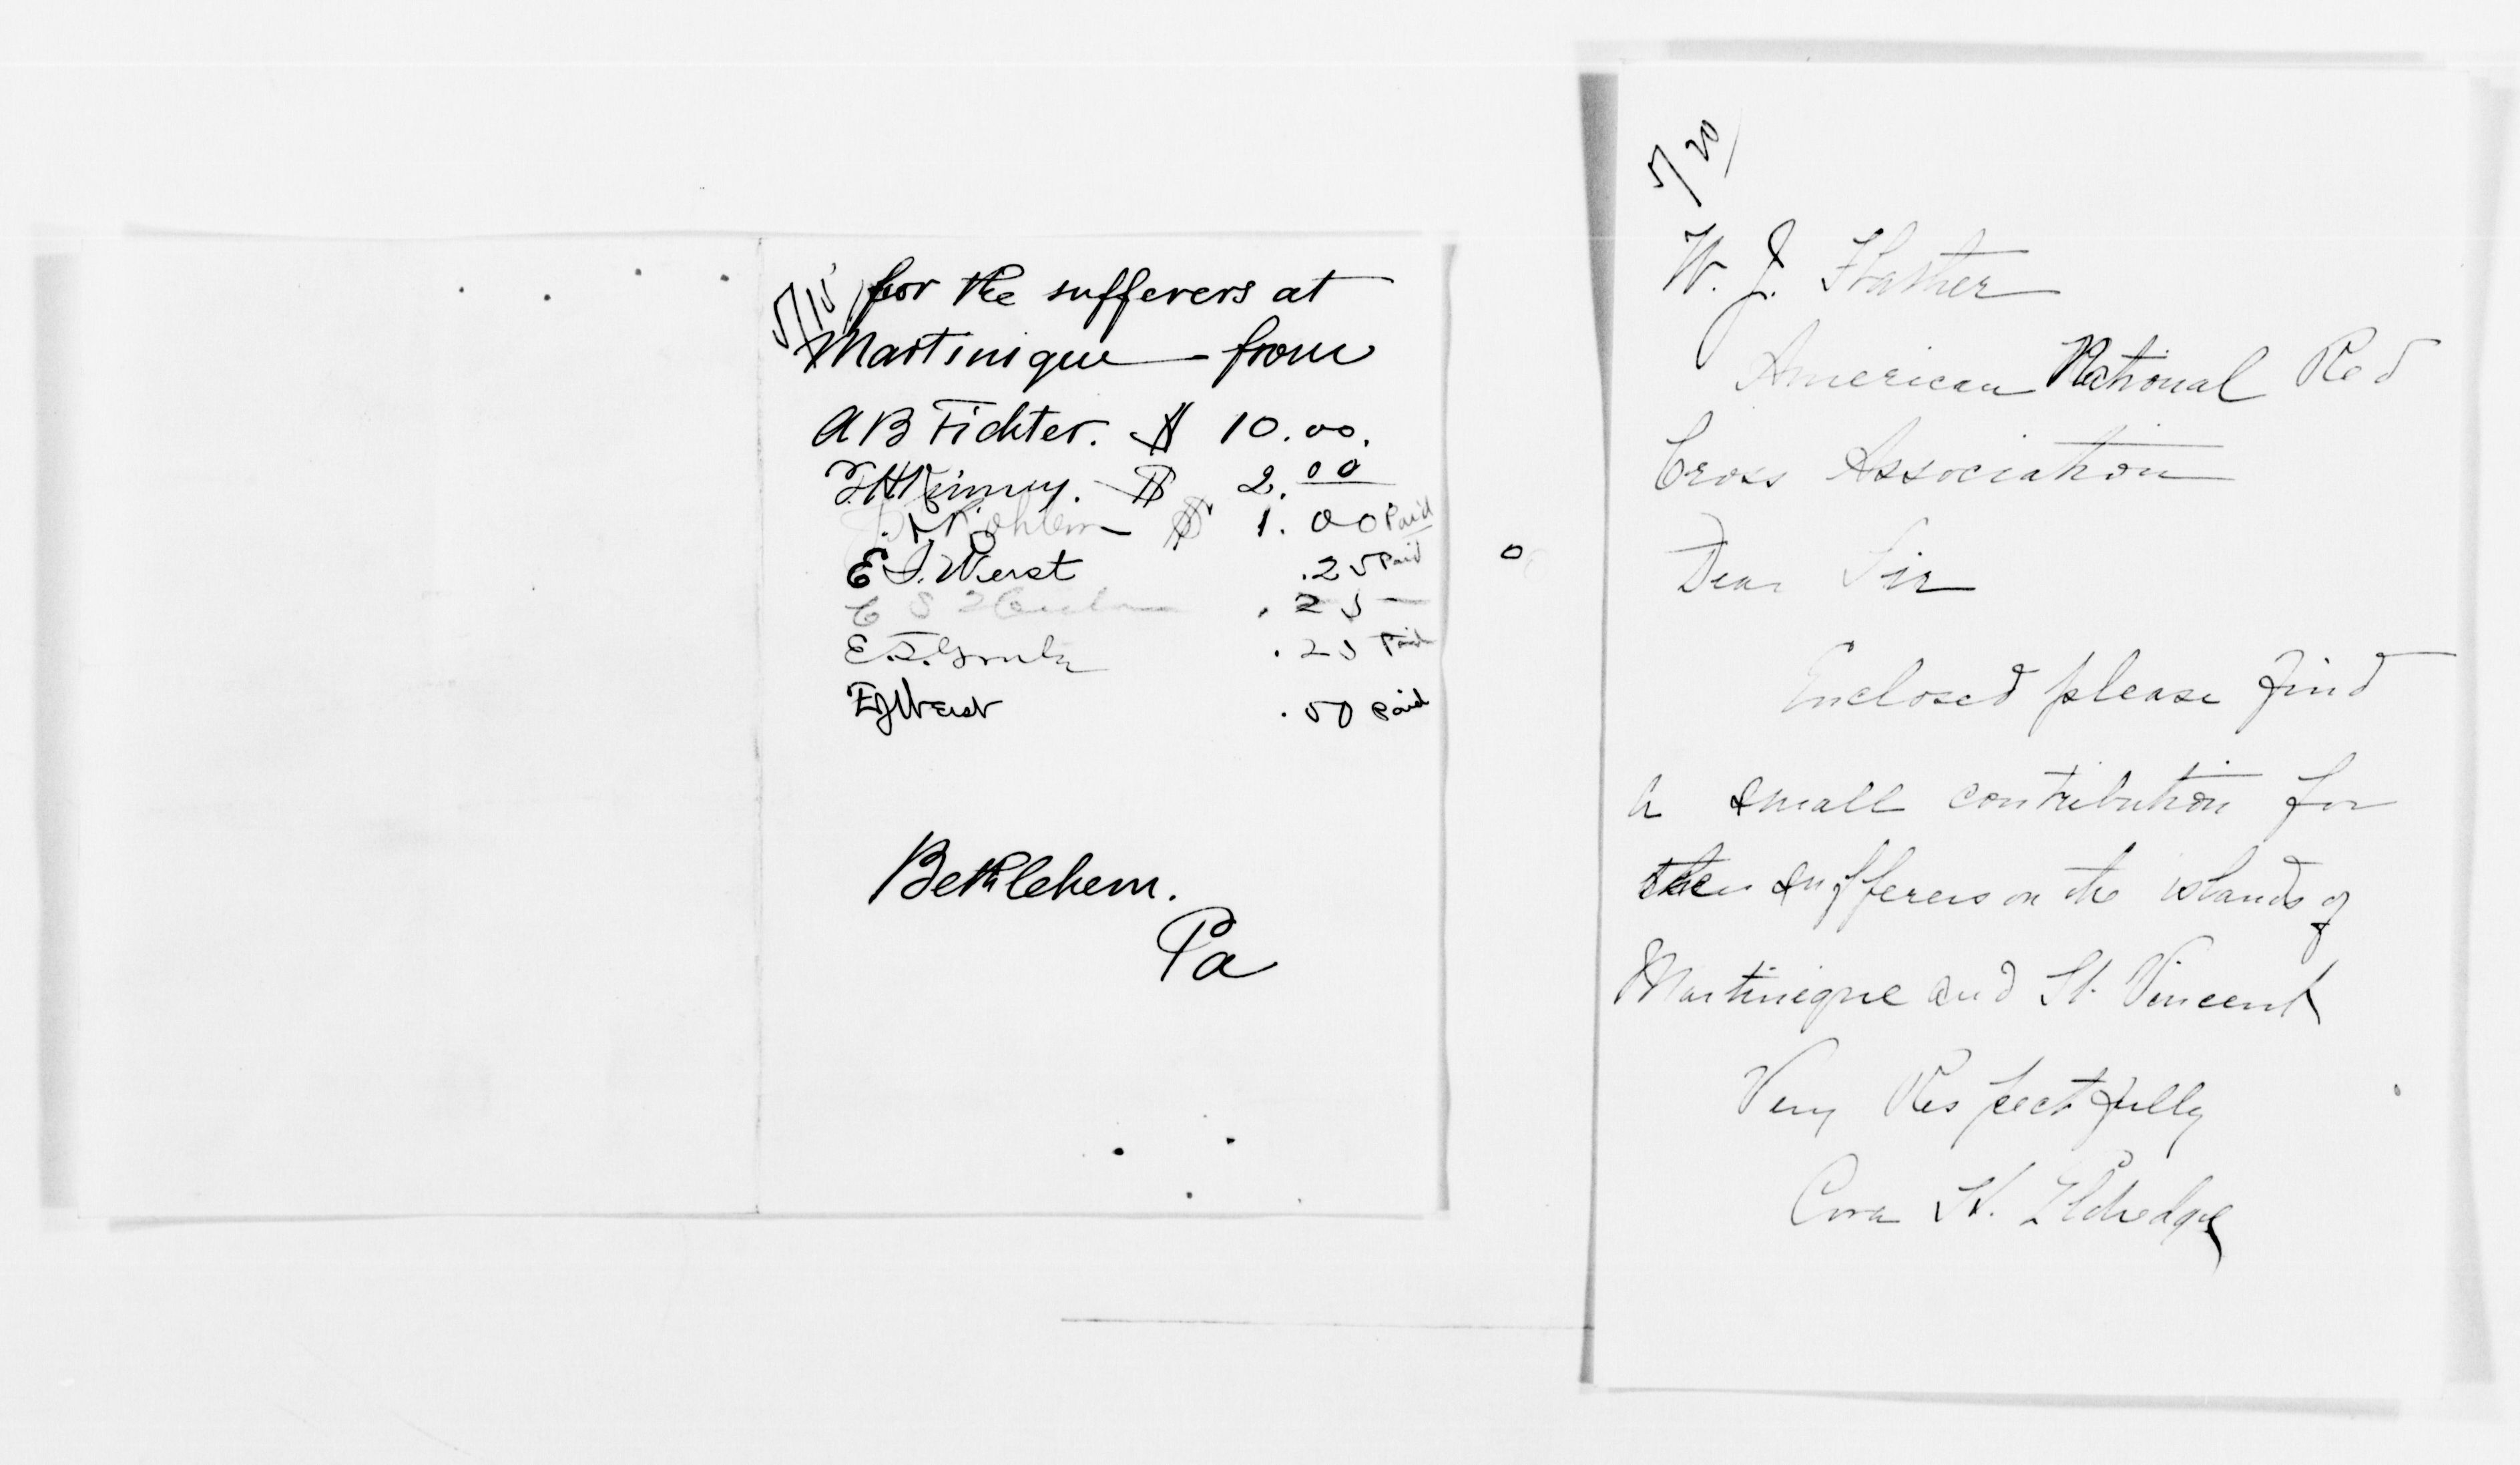 5/15
for the sufferers at
Martinique - from
A B Fichter. $ 10.00.
$ 2.00
$ 1.00 Paid
E. J. Werst .25 Paid
C S .25 —
E. .25 Paid
EJ Werst .50 paid
Bethlehem.
Pa
5/20
W. J. Flather
American National Red
Cross Association
Dear Sir
Enclosed please find
a small contribution for
the sufferers on the islands of
Martinique and St. Vincent
Very Respectfully
Cora H. Eldredge